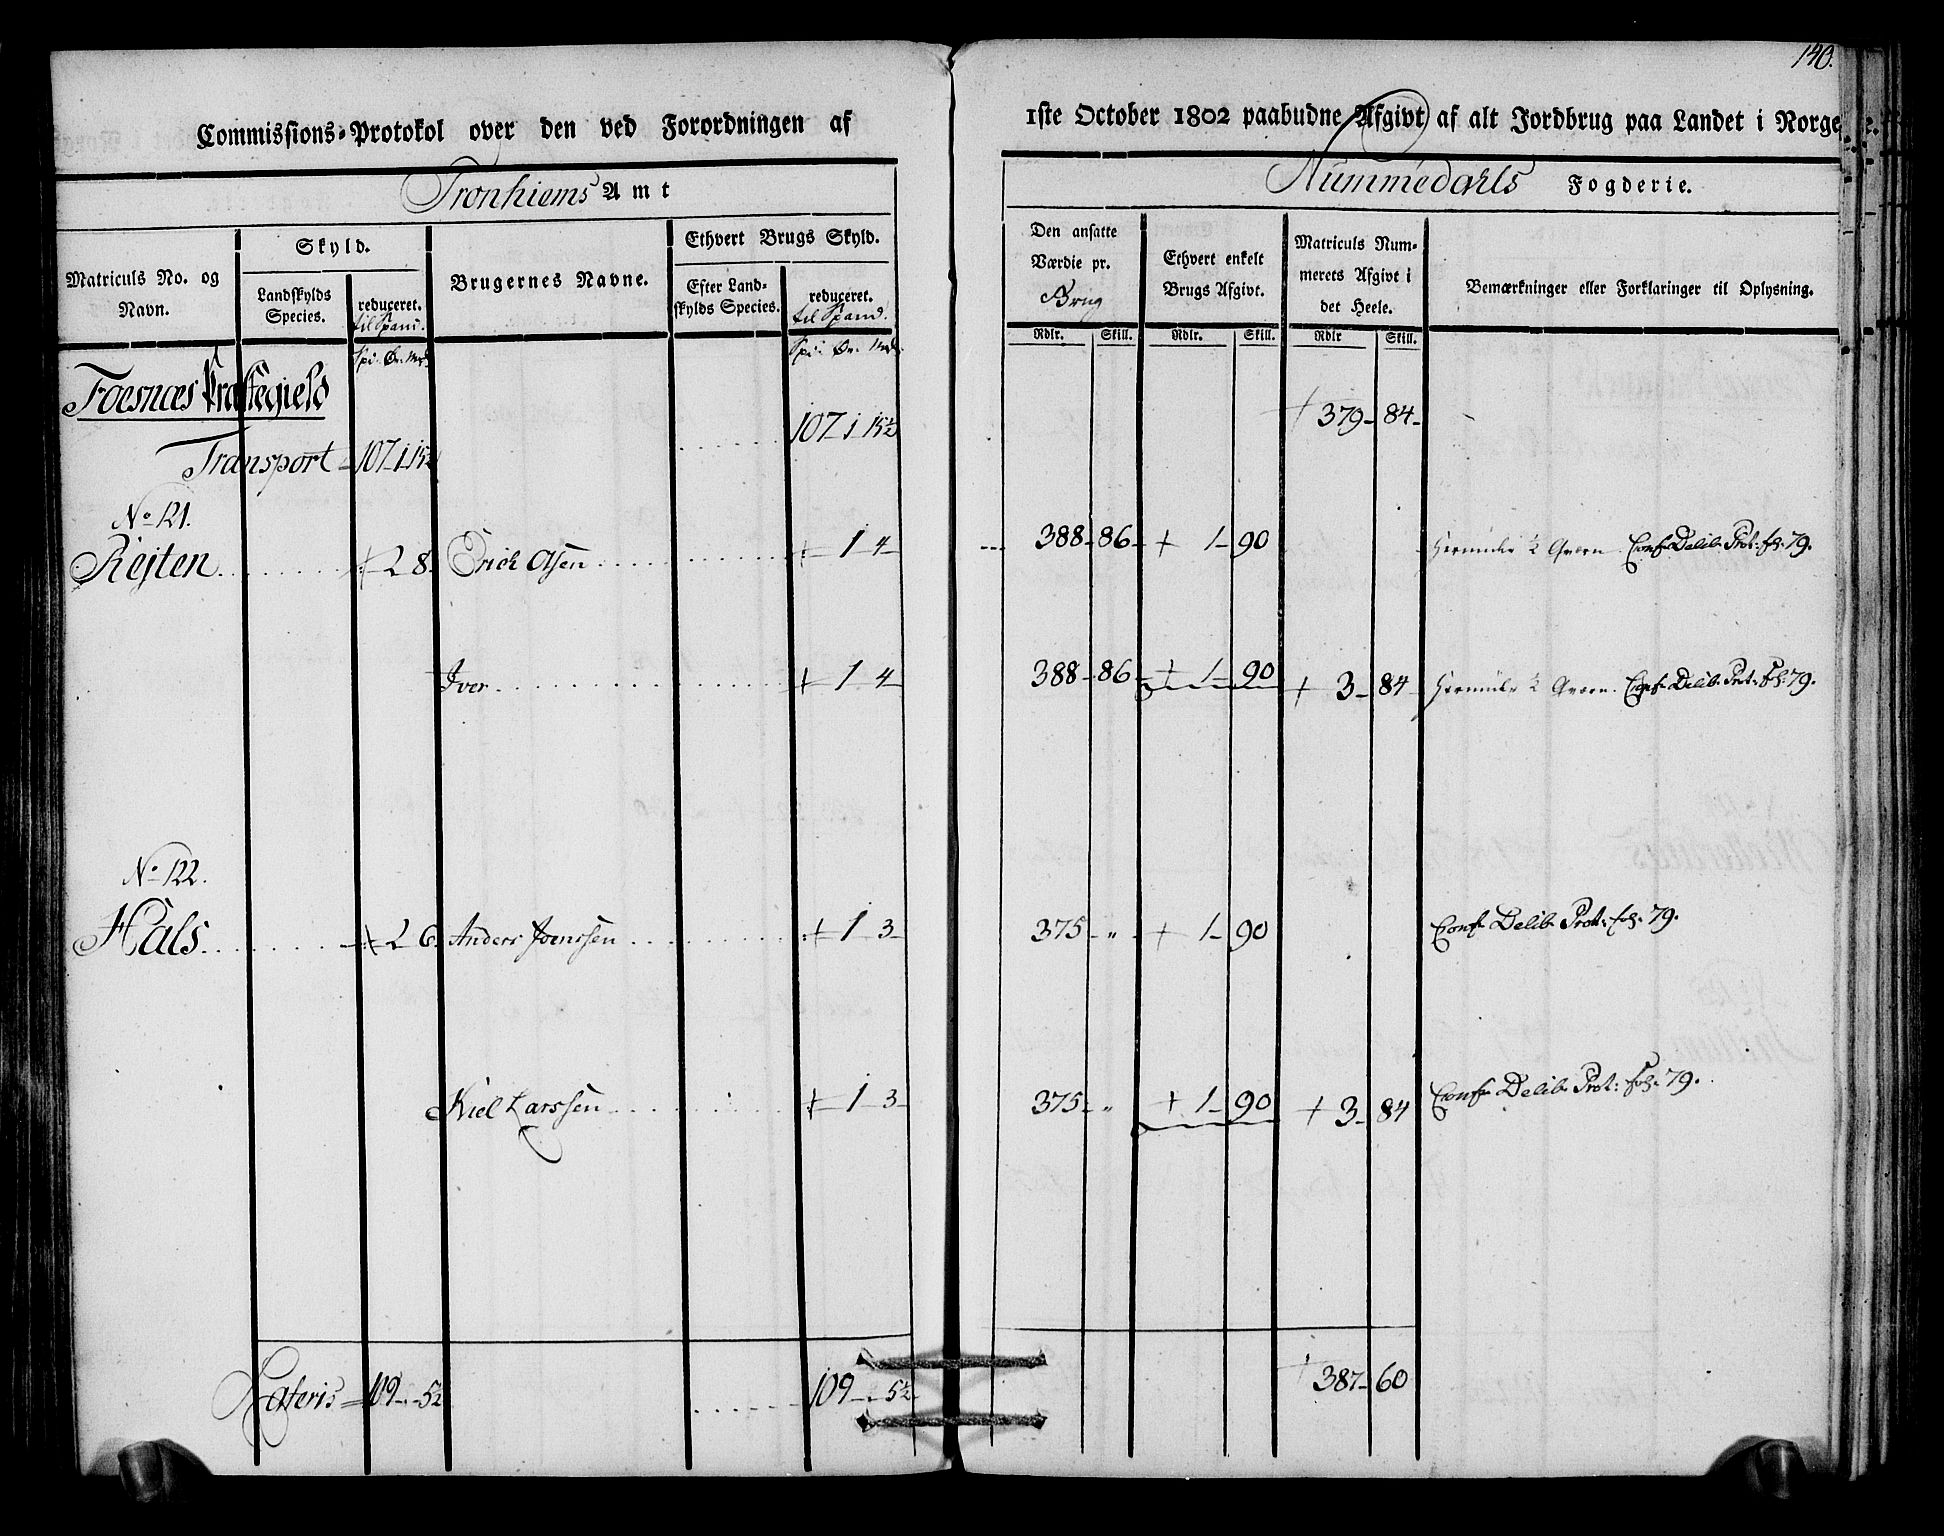 140.
Commissions-Protokol over den ved Forordningen af 1ste October 1802 paabudne Afgivt af alt Jordbrug paa Landet i Norge.
Tronhiems Amt
Nummedahls Fogderie.
Matriculs No. og Navn.
Skyld.
Landskylds Species.
reduceret. til Spand.
Brugernes Navne.
Ethvert Brugs Skyld.
Efter Landskylds Species.
reduceret. til Spand.
Den ansatte Værdie pr. Brug
Ethvert enkelt Brugs Afgivt.
Matriculs Nummerets Afgivt i det Heele.
Bemærkninger eller Forklaringer til Oplysning.
Rdlr. Skill. Rdlr. Skill. Rdlr Skill.
Foesnæs Præstegield
Transport 107 1 15½ 107 1 15½ 379 84
No 121.
Rejten 2 8 Erich Olsen 1 4 388 86 1 90 Conf Delib Prot: fol: 79.
Iver 1 4 388 86 1 90 3 84 Conf Delib Prot: fol: 79.
No 122.
Hals 2 6 Anders Joenssen 1 3 375 " 1 90 Conf Delib Prot: fol: 79.
Kiel Larssen 1 3 375 " 1 90 3 84 Conf Delib Prot: fol: 79.
Lateris 109 5½ 109 5½ 387 60